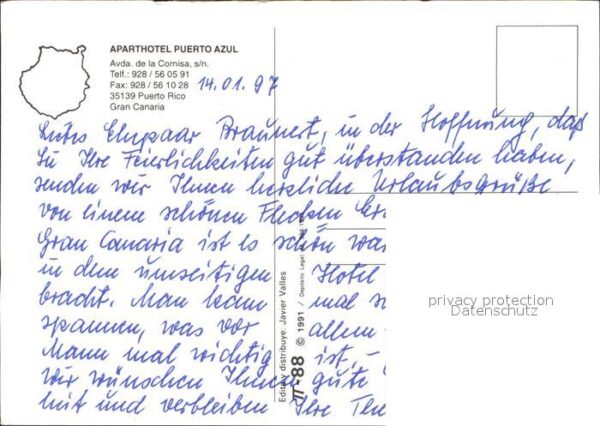 APARTHOTEL PUERTO AZUL
Avda. de la Cornisa, s/n.
Telf.: 928 / 56 05 91
Fax: 928 / 56 10 28
35139 Puerto Rico
Gran Canaria
14.01.97
Liebes Ehepaar Braunert, in der Hoffnung, daß
Sie Ihre Feierlichkeiten gut überstanden haben,
senden wir Ihnen herzliche Urlaubsgrüße
von einem schönen Flecken
Gran Canaria ist es schön
in dem umseitigen Hotel
bracht. Man kann mal
spannen, was vor allem
Mann mal wichtig ist, –
Wir wünschen Ihnen gute
heit und verbleiben Ihre
Edita y distribuye: Javier Valles
π-88 © 1991 / Depósito Legal
privacy protection
Datenschutz